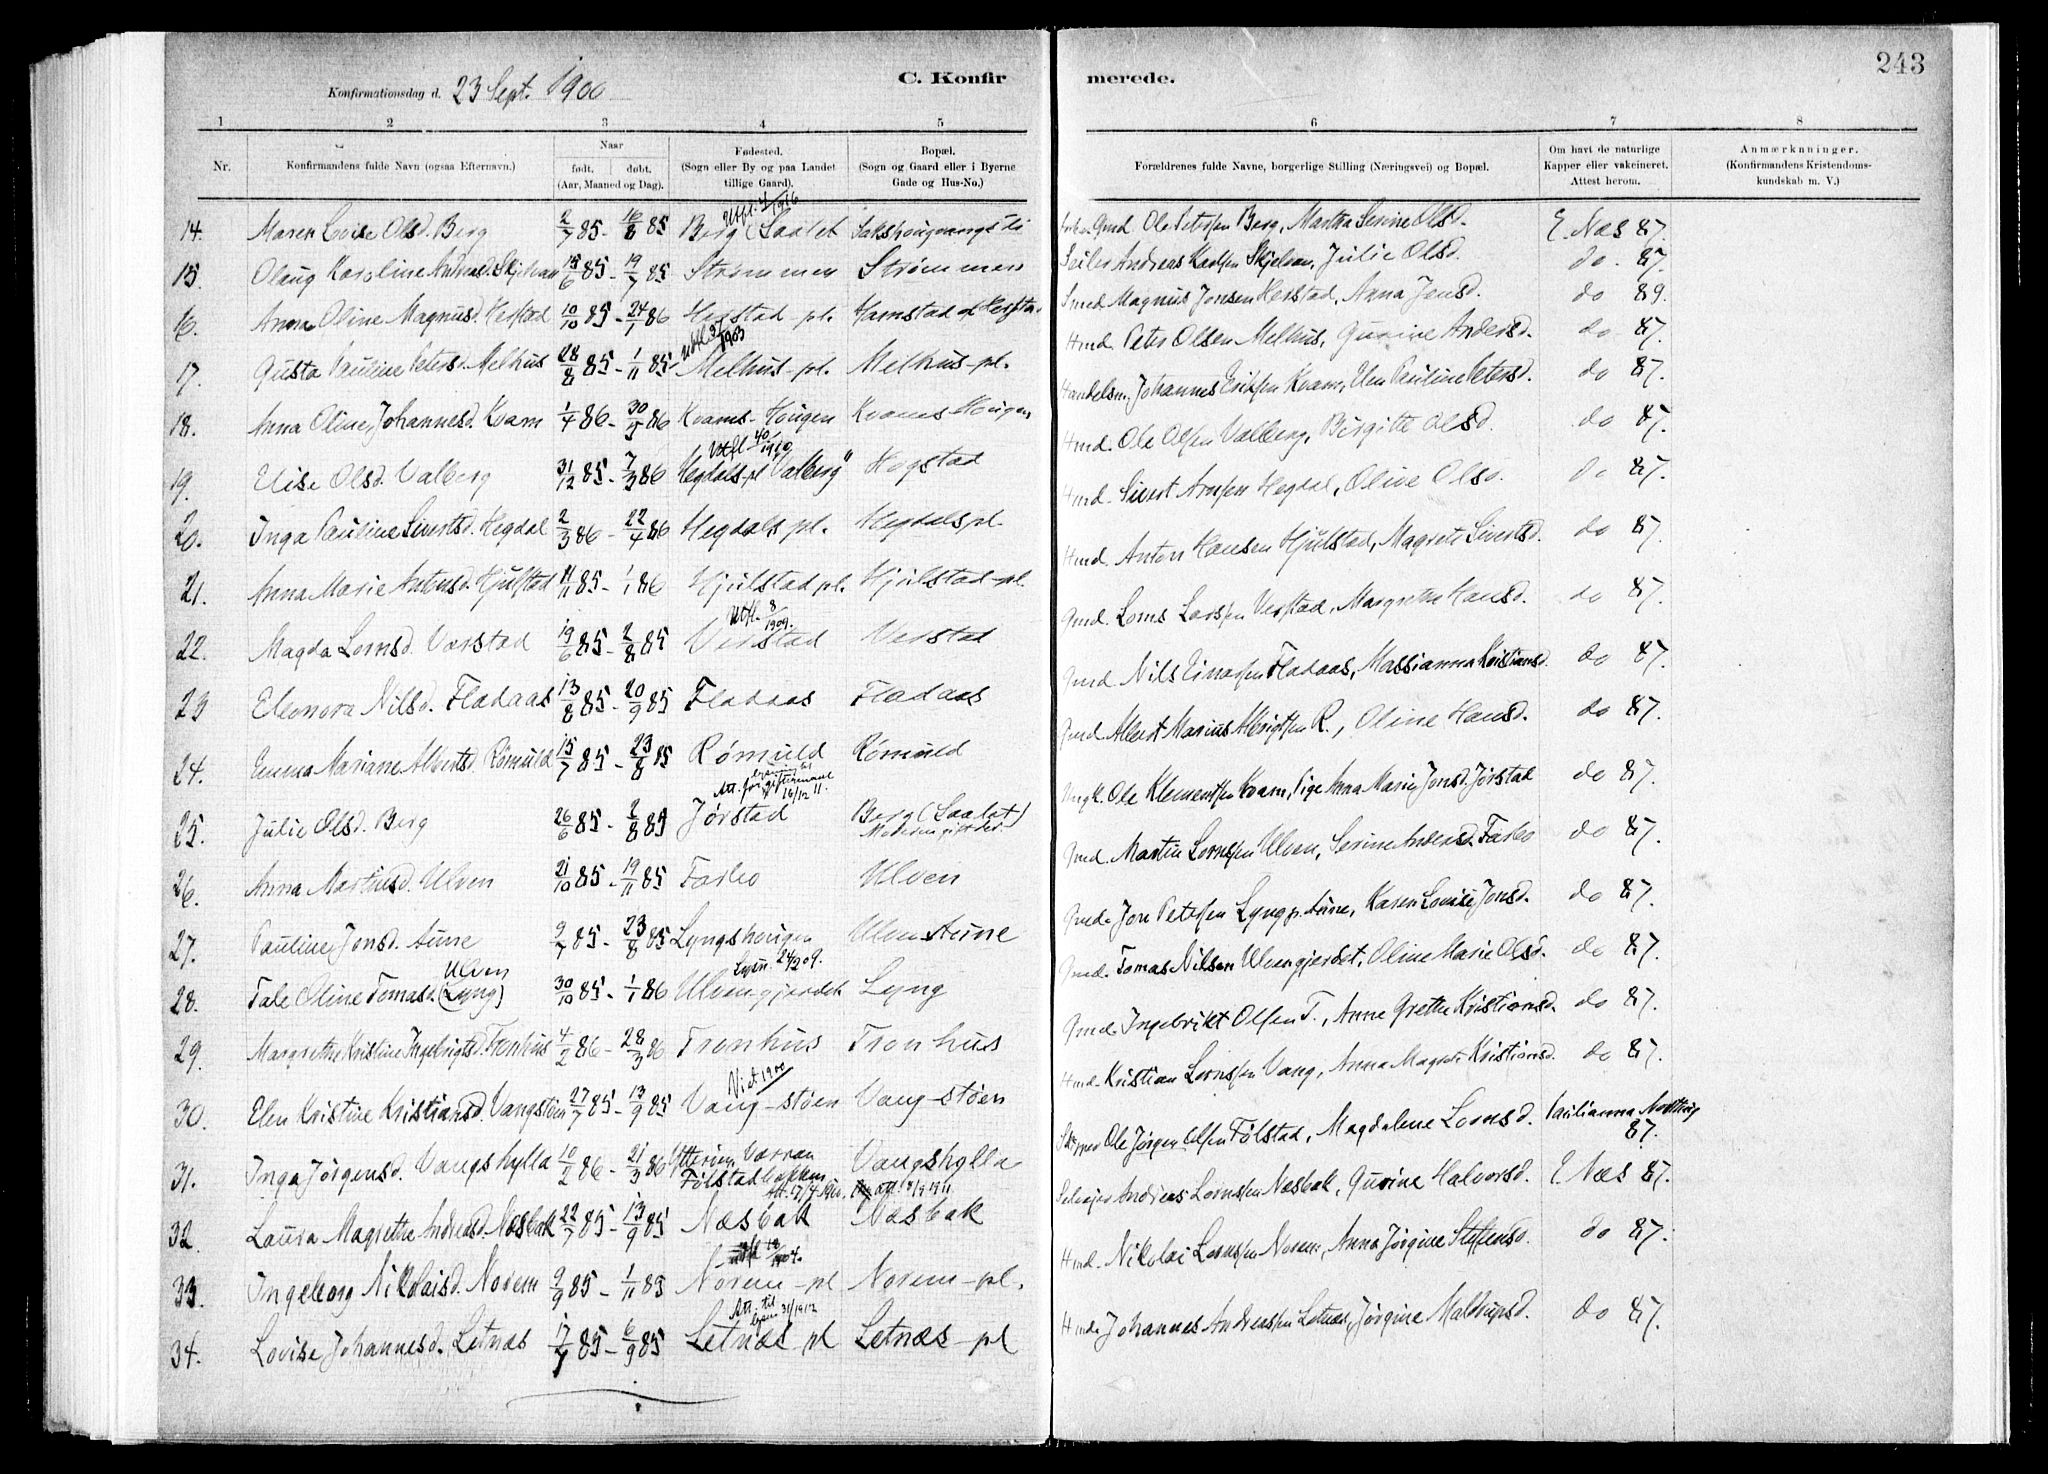 243
C. Konfir merede.
Konfirmationsdag d. 23 Sept. 1900
1 2 3 4 5 6 7 8
Nr. Konfirmandens fulde Navn (ogsaa Efternavn.) Naar født. døbt. (Aar, Maaned og Dag). Fødested. (Sogn eller By og paa Landet tillige Gaard). Bopæl. (Sogn og Gaard eller i Byerne Gade og Hus-No.) Forældrenes fulde Navne, borgerlige Stilling (Næringsvei) og Bopæl. Om havt de naturlige Kapper eller vakcineret. Attest herom. Anmærkninger. (Konfirmandens Kristendoms-kundskab m. V.)
Utfl. 4/1916
14. Maren Lovise Olsd. Berg 2/7 85 - 16/8 85 Berg (Saalet Gmd. Ole Petersen Berg, Martha Serine Olsd. E. Næs 87.
15. Olaug Karoline Andreasd. Skjelvan 15/6 85 - 19/7 85 Strømmen Strømmen Andreas Karlsen Skjelvan, Julie Olsd. do. 87.
16. Anna Oline Magnusd. Herstad 10/10 85 - 24/1 86 Herstad - pl. Hamstad Smed Magnus Jonsen Herstad, Anna Jensd. do 89.
1903
17. Gusta Pauline Petersd. Melhus 28/8 85 - 1/11 85 Melhus - pl. Melhus - pl. Hmd. Peter Olsen Melhus, Gurine Andersd. do 87.
18. Anna Oline Johannesd. Kvam 1/4 86 - 30/5 86 Kvams-Hougen Kvams Hougen Handelsm. Johannes Eriksen Kvam, Elen Pauline Petersd. do 87.
Utfl. 40/1910
19. Elise Olsd. Valberg 31/12 85 - 7/3 86 Hegdals-pl "Valberg" Hogstad Hmd. Ole Olsen Valberg, Birgitte Olsd. do 87.
20. Inga Pauline Sivertsd. Hegdal 2/3 86 - 22/4 86 Hegdals pl. Hegdals pl. Hmd. Sivert Arnsen Hegdal, Olive Olsd. do 87.
21. Anna Marie Antonsd. Hjulstad 11/11 85 - 1/1 86 Hjulstad pl. Hjulstad - pl. Hmd. Anton Hansen Hjulstad, Magrete Sivertsd. do 87.
Utfl. 8/1909.
22. Magda Lornsd. Værstad 19/6 85 - 2/8 85 Verstad Verstad Gmd. Lorns Larssen Verstad, Margrethe Hansd. do 87.
23 Eleonora Nilsd. Fladaas 13/8 85 - 20/9 85 Fladaas Fladaas Gmd. Nils Einarsen Fladaas, Massianna Kristiansd. do 87.
24. Emma Mariane Albertsd. Rómuld 15/7 85 - 23/8 85 Rómuld Rómuld Gmd. Albert Marius Albrigtsen R., Oline Hansd. do 87.
Att. 16/12 11.
25. Julie Olsd. Berg 26/6 85 - 2/8 85 Jørstad Berg (Saalet) Moderen gift der. Ungk. Ole Klementsen Kvam, Pige Anna Marie Jonsd. Jørstad do 87.
26. Anna Martinsd. Ulven 21/10 85 - 19/11 85 Farbo Ulven Gmd. Martin Lornssen Ulven, Serine Andersd. Farbo do 87.
27. Pauline Jonsd. Aune 9/7 85 - 23/8 85 Lyngshougen Ulven Aune Gmd. Jon Petersen Lyng p. Aune, Karen Lovise Jonsd. do 87.
Lysn. 24/12 09.
28. Tale Oline Tomasd. Ulven (Lyng) 30/10 85 - 1/1 86 Ulvengjerdet Lyng Gmd. Tomas Nilsen Ulvengjerdet, Oline Marie Olsd. do 87.
29. Margrethe Kristine Ingebrigtsd. Tronhus 4/2 86 - 28/3 86 Tronhus Tronhus Gmd. Ingebrikt Olsen T., Anne Grethe Kristiansd. do 87.
Viet 1900
30. Elen Kristine Kristiansd. Vangstøen 27/7 85 - 13/9 85 Vang - støen Vang - støen Hmd. Kristian Lornssen Vang, Anna Magrete Kristiansd. do 87.
31. Inga Jørgensd. Vangshylla 10/2 86 - 21/3 86 Ytterøen Værran Følstadbakken Vangshylla Ole Jørgen Olsen Følstad, Magdalene Lornsd. 87.
32. Laura Magrethe Andreasd. Næsbak 22/7 85 - 13/9 85 Næsbak Næsbak Selveier Andreas Lornssen Næsbak, Gurine Halvorsd. E. Næs 87.
33. Ingeborg Nikolaisd. Norem 9/9 85 - 1/11 85 Norem - pl Norem - pl. Hmd. Nikolai Lornssen Norem, Anna Jørgine Steffensd. do 87.
Att. til lysn. 31/1912
34. Lovise Johannesd. Letnæs 17/7 85 - 6/9 85 Letnæs pl Letnæs - pl Hmd. Johannes Andreassen Letnæs, Jørgine do 87.